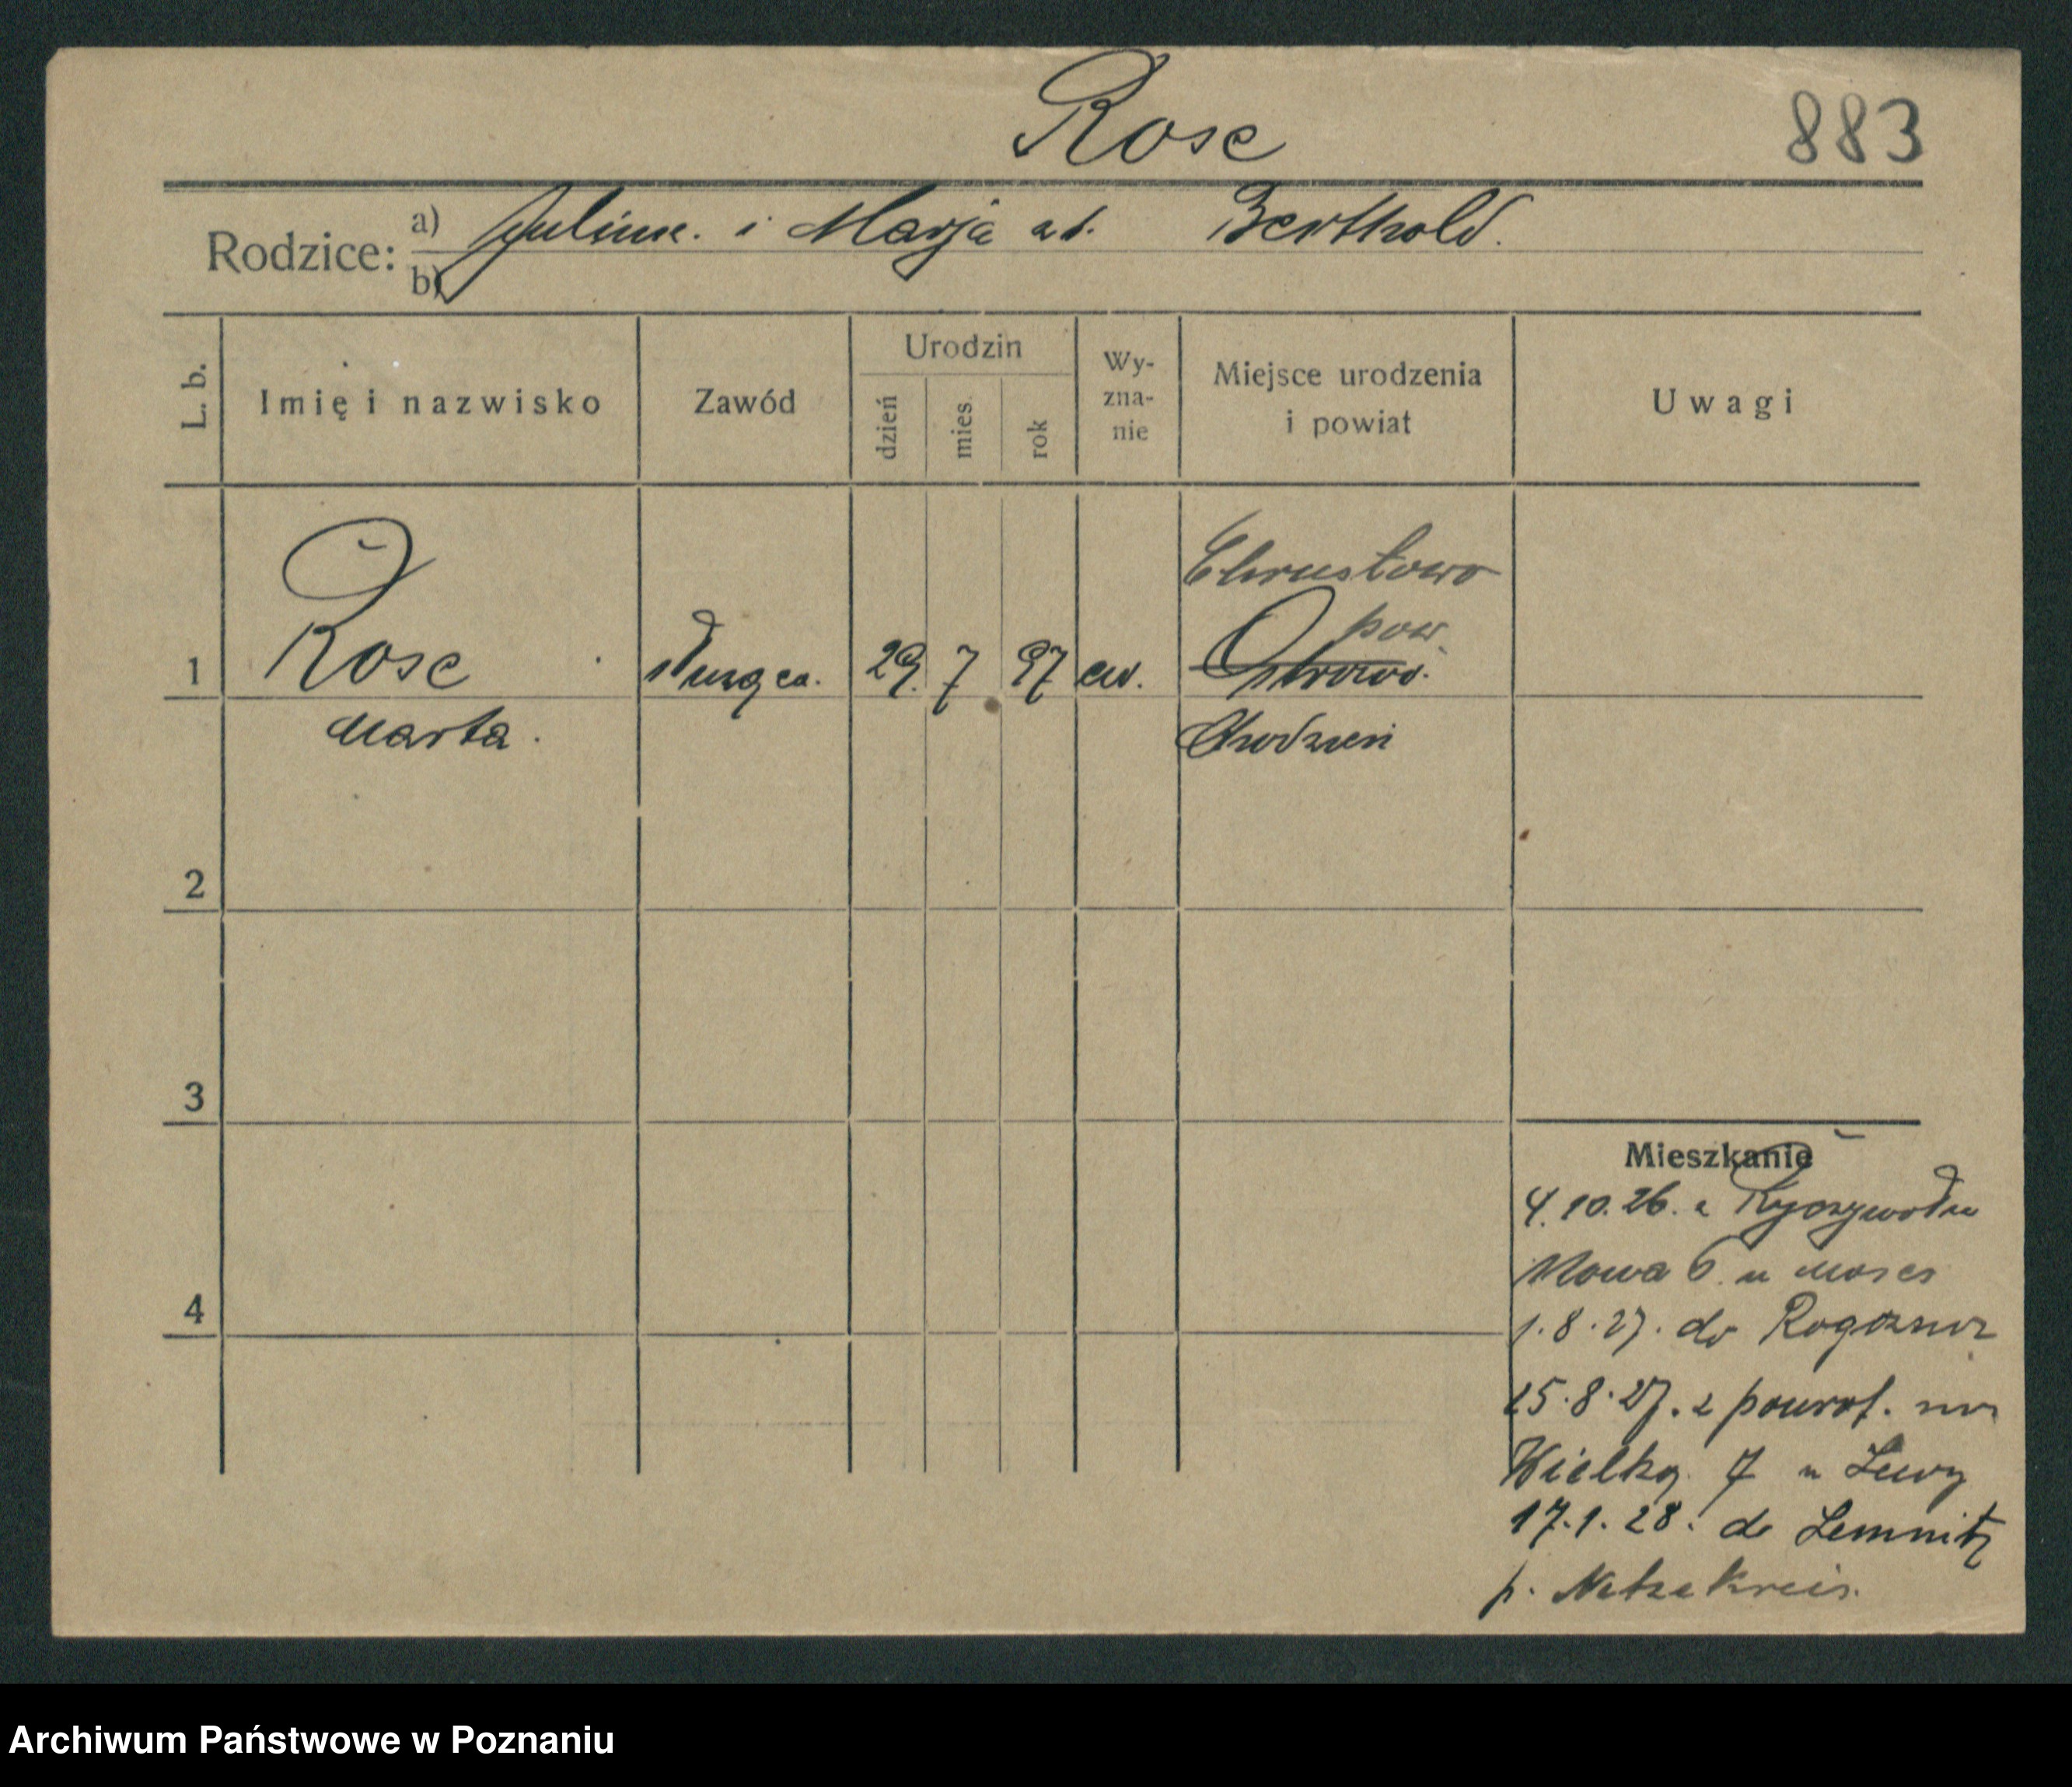 Rose
883
Rodzice: a) Julius. i Marja zd. Berthold.
b)
L. b.
Imię i nazwisko
Zawód
Urodzin
dzień
mies.
rok
Wy-
zna-
nie
Miejsce urodzenia
i powiat
Uwagi
1
Rose
Marta.
służąca.
29.
7
97
ew.
Chrustowo
pow.
Ostrowo.
Chodzież
2
3
4
Mieszkanie
4. 10. 26. z Ryczywołu
Nowa 6. u Moses
1. 8. 27. do Rogoźna
15. 8. 27. z powrot. na
Wielką. 7 u Lewy
17. 1. 28. do Lemnitz
p. Netzekreis.
Archiwum Państwowe w Poznaniu